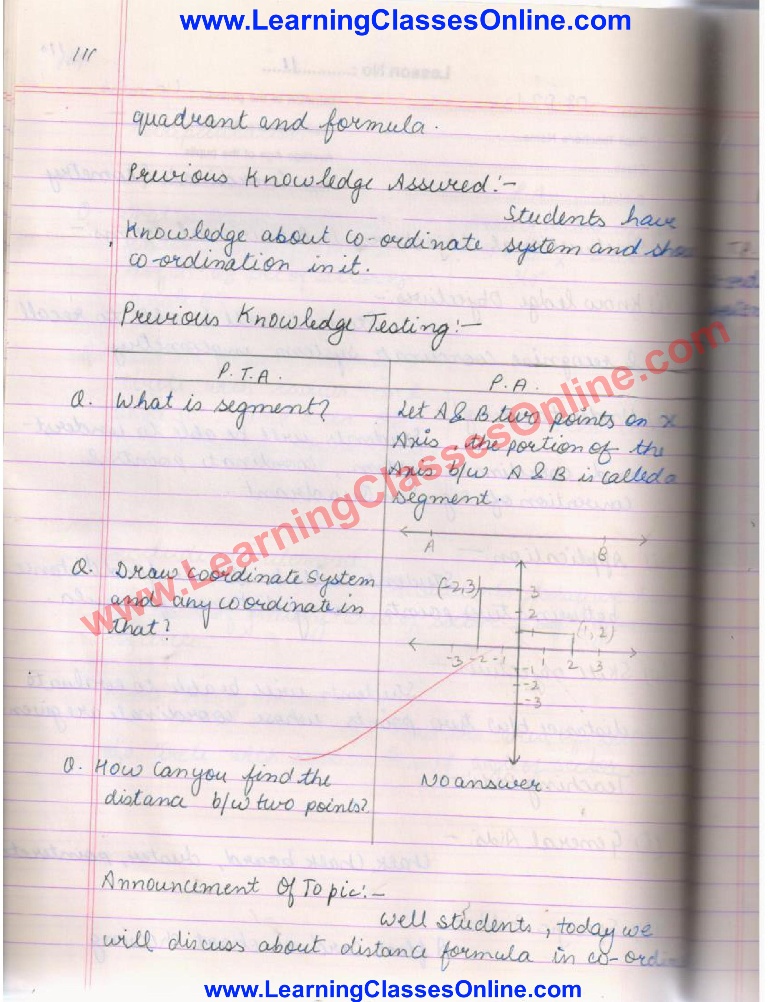 www.LearningClassesOnline.com
111
quadrant and formula.
Previous Knowledge Assured:-
Students have
Knowledge about co-ordinate system and
co-ordination in it.
Previous Knowledge Testing:-
P.T.A. P.A.
Q. What is segment?
Let A & B two points on x
Axis, the portion of the
Axis b/w A & B is called a
segment.
A B
Q. Draw coordinate system
and any coordinate in
that?
(-2,3) 3
2
1 (1,2)
-3 -2 -1 1 2 3
-1
-2
-3
Q. How can you find the
distance b/w two points?
No answer
Announcement Of Topic:-
Well students, today we
will discuss about distance formula in
www.LearningClassesOnline.com
www.LearningClassesOnline.com